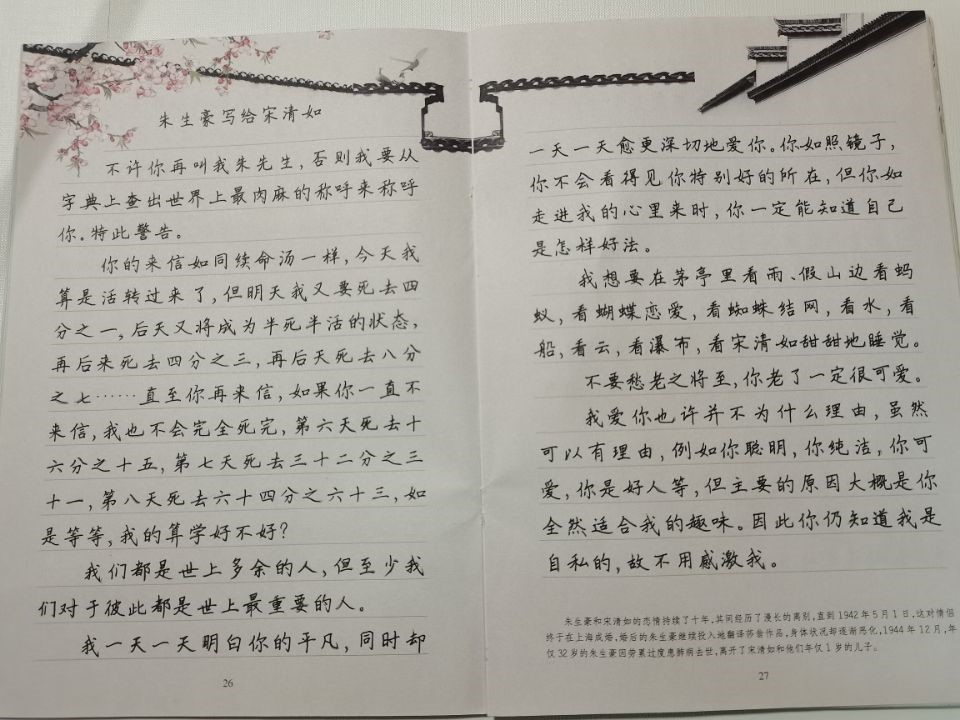 朱生豪写给宋清如
不许你再叫我朱先生，否则我要从
字典上查出世界上最肉麻的称呼来称呼
你。特此警告。
你的来信如同续命汤一样，今天我
算是活转过来了，但明天我又要死去四
分之一，后天又将成为半死半活的状态，
再后来死去四分之三，再后天死去八分
之七……直至你再来信，如果你一直不
来信，我也不会完全死完，第六天死去十
六分之十五，第七天死去三十二分之三
十一，第八天死去六十四分之六十三，如
是等等，我的算学好不好？
我们都是世上多余的人，但至少我
们对于彼此都是世上最重要的人。
我一天一天明白你的平凡，同时却
26
一天一天愈更深切地爱你。你如照镜子，
你不会看得见你特别好的所在，但你如
走进我的心里来时，你一定能知道自己
是怎样好法。
我想要在茅亭里看雨、假山边看蚂
蚁，看蝴蝶恋爱，看蜘蛛结网，看水，看
船，看云，看瀑布，看宋清如甜甜地睡觉。
不要愁老之将至，你老了一定很可爱。
我爱你也许并不为什么理由，虽然
可以有理由，例如你聪明，你纯洁，你可
爱，你是好人等，但主要的原因大概是你
全然适合我的趣味。因此你仍知道我是
自私的，故不用感激我。
朱生豪和宋清如的恋情持续了十年，其间经历了漫长的离别，直到1942年5月1日，这对情侣
终于在上海成婚，婚后的朱生豪继续投入地翻译莎翁作品，身体状况却逐渐恶化，1944年12月，年
仅32岁的朱生豪因劳累过度患肺病去世，离开了宋清如和他们年仅1岁的儿子。
27